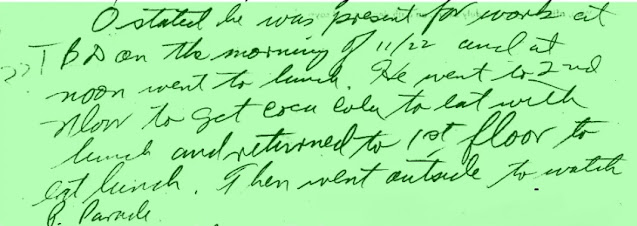 O stated he was present for work at
TBD on the morning of 11/22 and at
noon went to lunch. He went to 2nd
floor to get coca cola to eat with
lunch and returned to 1st floor to
eat lunch. Then went outside to watch
P. Parade